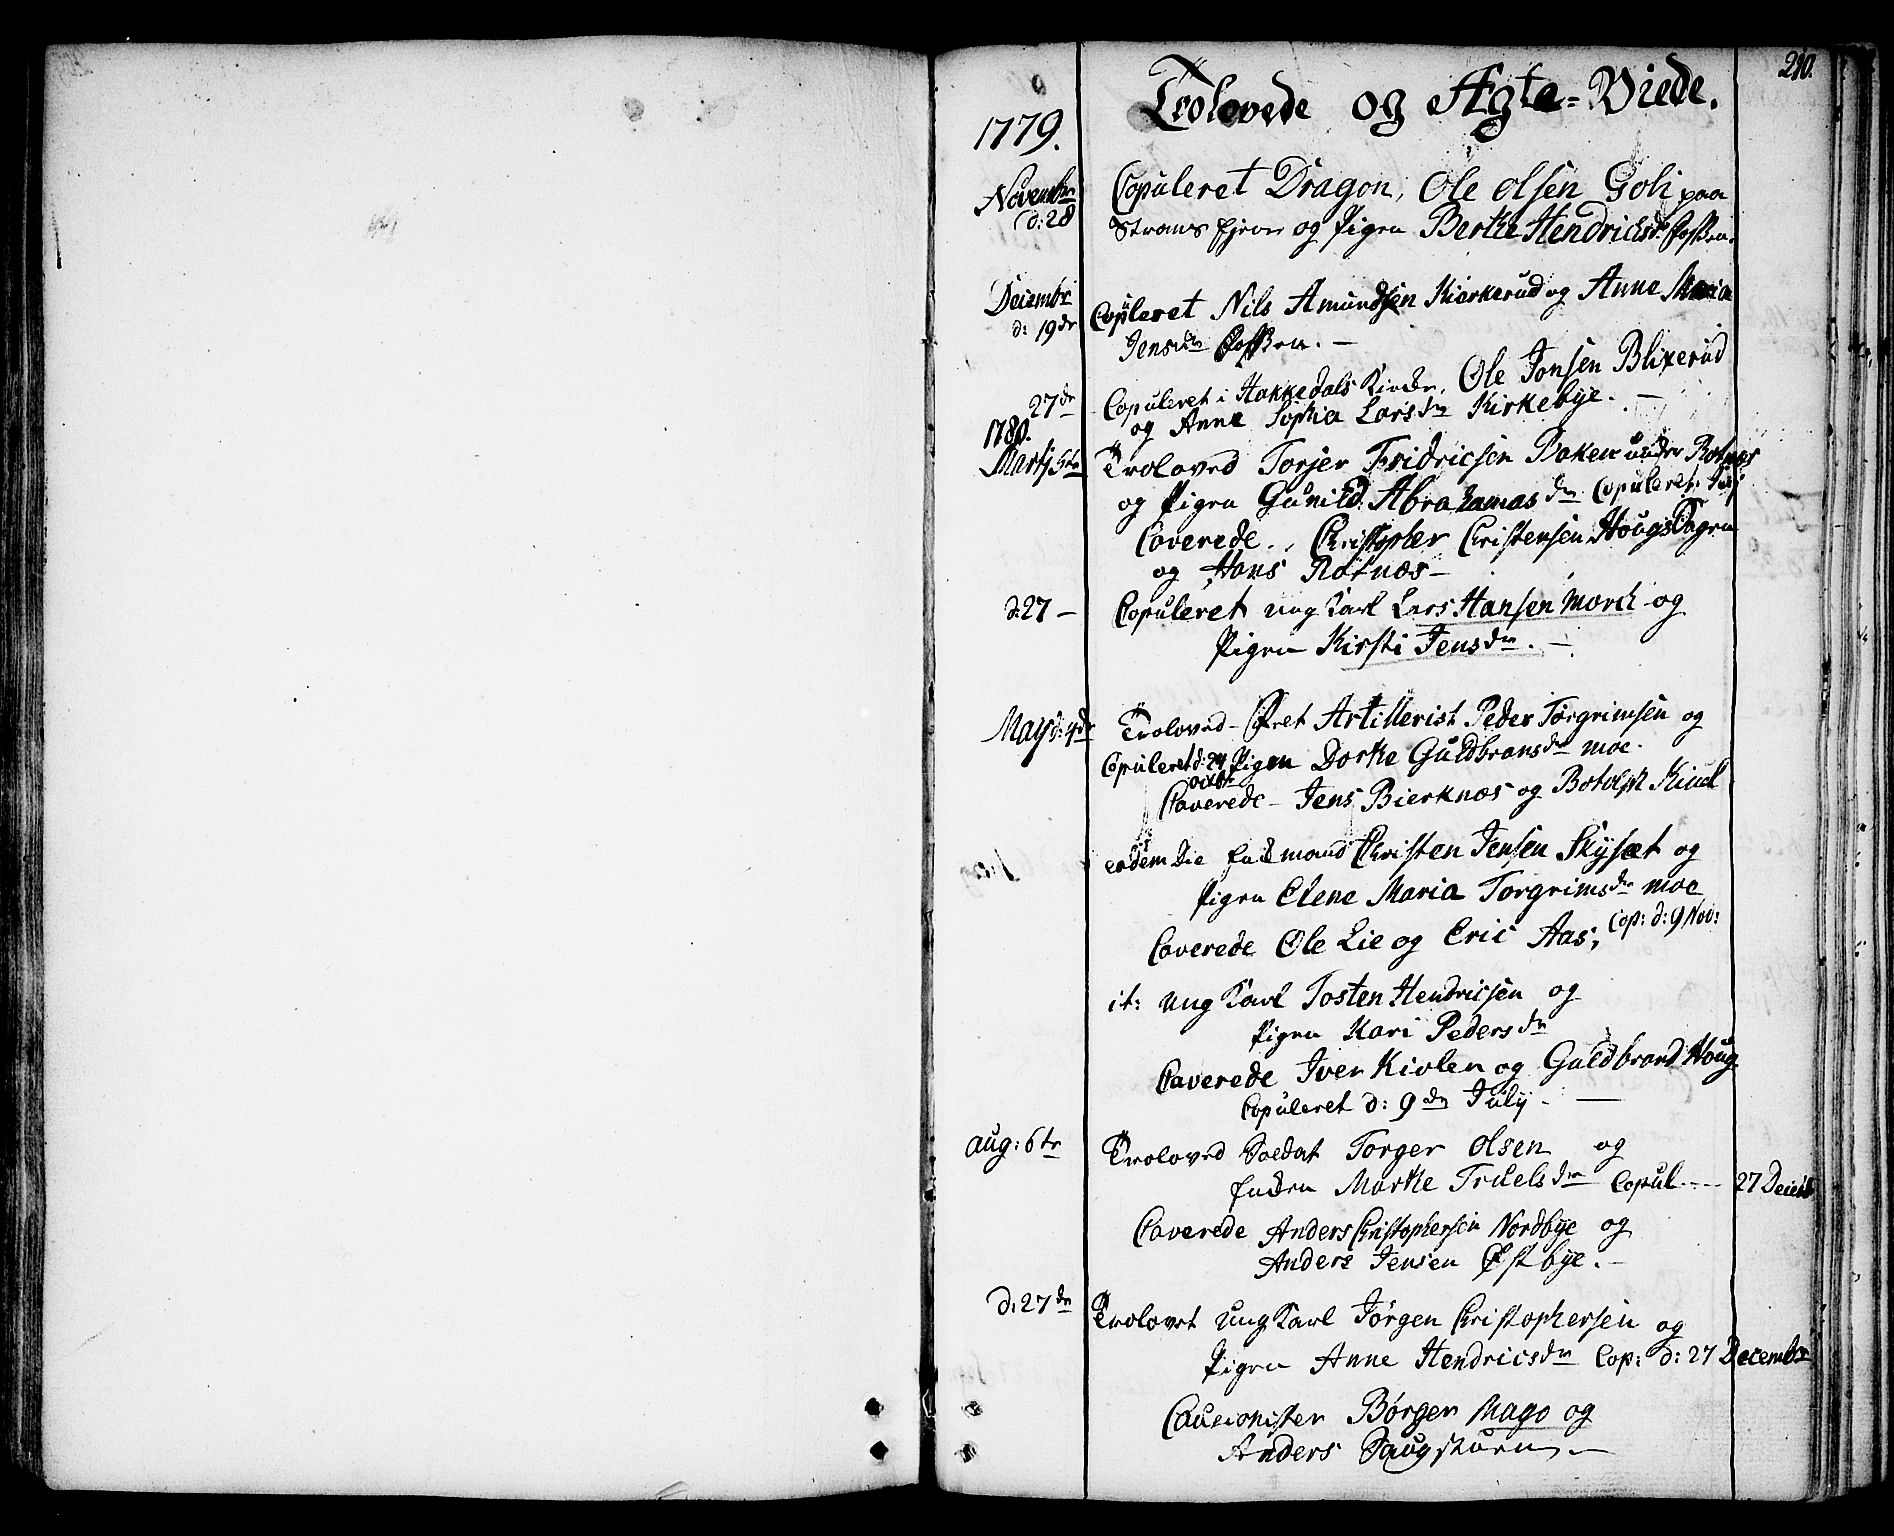 210.
Trolovede og Ægte-Viede.
1779.
Novembr d: 28 Copuleret Dragon, Ole Olsen Goli paa
Strøms Ejer og Pigen Berthe Hendrichsdr
Decembr d: 19de Copuleret Nils Amundsen Kierkerud og Anne Maria
Jensdr
27de Copuleret i Hakkedals Kirke, Ole Jonsen Blixerud
og Anne Sophia Larsdr Kirkebye. —
1780.
Martj 5te Troloved Torjer Fridricsen Baken under Rotnæs
og Pigen Gunild Abrahamsdr Copuleret
Caverede. Christopher Christensen Hougs
og Hans Rotnæs —
d: 27 — Copuleret ung Karl Lars Hansen Morch og
Pigen Kirsti Jensdr. —
May d: 4de Troloved Artillerist Peder Torgrimsen og
Copuleret d: 24 Octbr Pigen Dorthe Guldbransdr Moe.
Caverede — Jens Bierknæs og Botolph Kiuul
eodem Die Enkemand Christen Jensen Skysæt og
Pigen Elene Maria Torgrimsdr Moe
Caverede Ole Lie og Eric Aas, Cop: d: 9 Nov:
it: ung Karl Tosten Hendricsen og
Pigen Kari Pedersdr
Caverede Iver Kiolen og Guldbrand Houg.
Copuleret d: 9de July. —
Aug: 6te Troloved Soldat Torger Olsen og
Enken Marthe Truelsdr Copul. -- 27 Decebr
Caverede Anders Christophersen Nordbye og
Anders Jensen Østbye. —
d: 27de Trolovet ung Karl Jørgen Christophersen og
Pigen Anne Hendricsdr Cop: d: 27 Decembr
Cautionister Børger Mago og
Anders Saugstuen. —